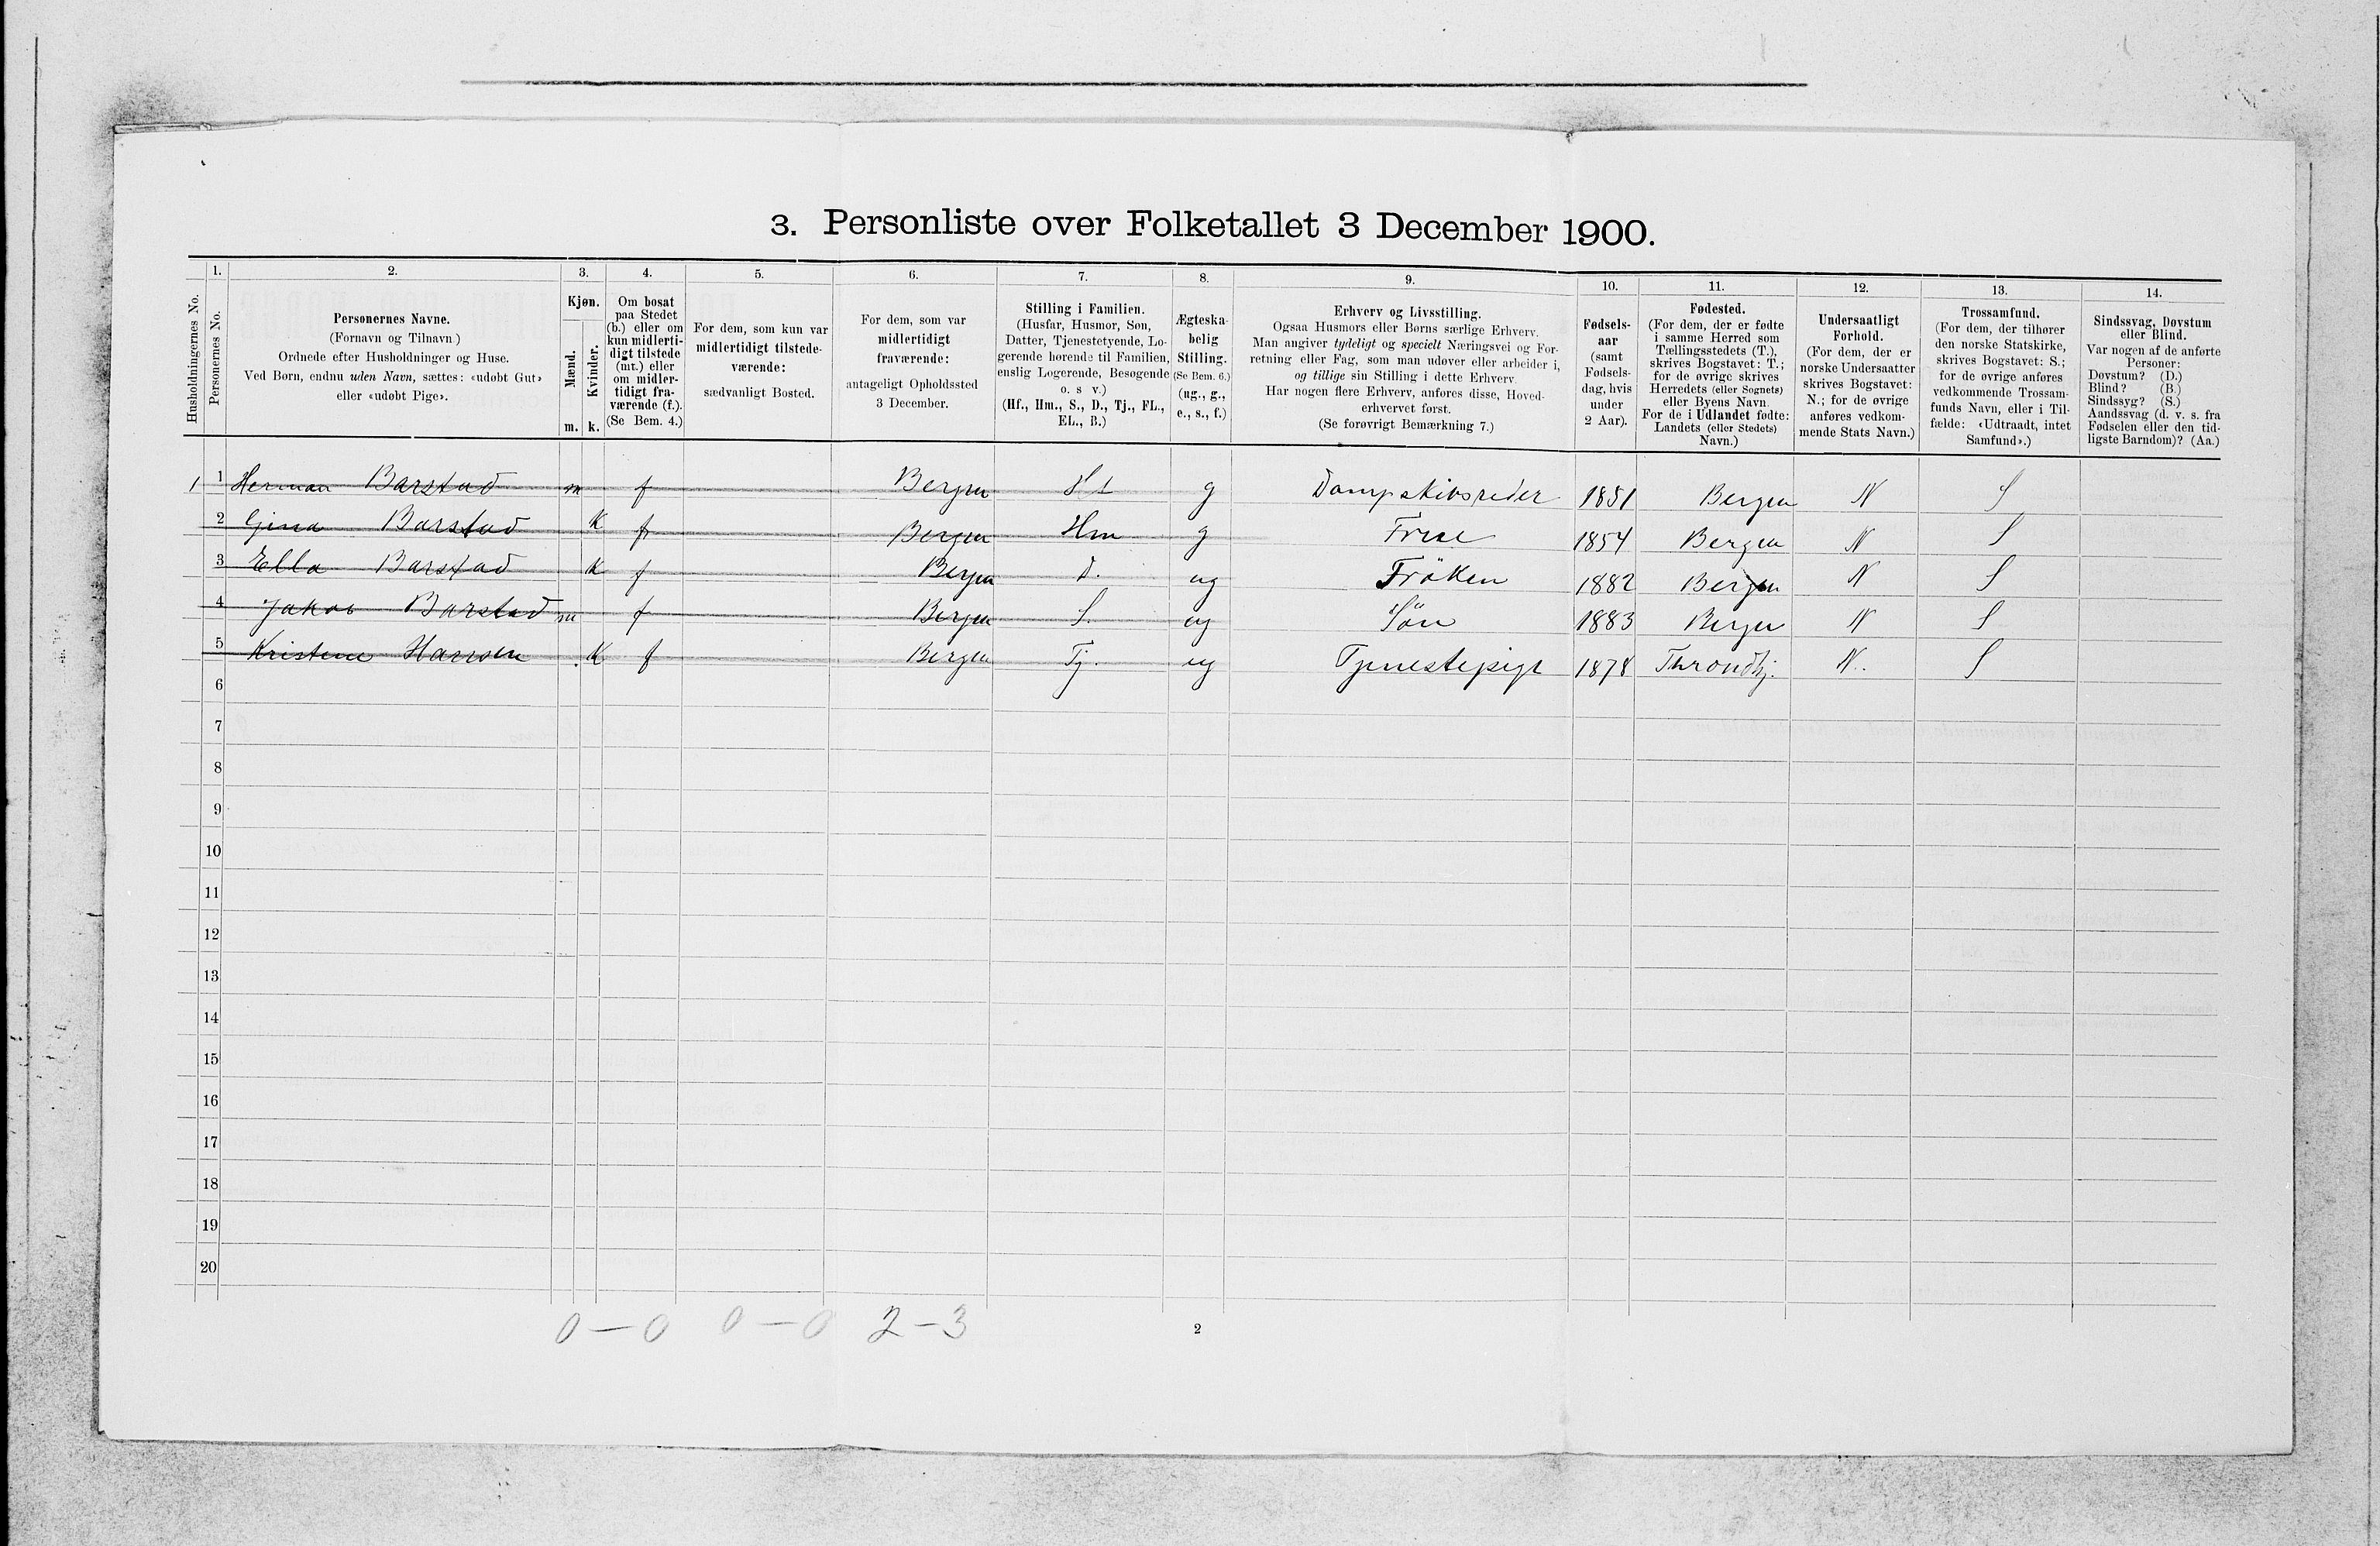 3. Personliste over Folketallet 3 December 1900.
Husholdningernes No.
1.
Personernes No.
2.
Personernes Navne.
(Fornavn og Tilnavn)
Ordnede efter Husholdninger og Huse.
Ved Børn, endnu uden Navn, sættes: «udøbt Gut»
eller «udøbt Pige».
3.
Kjøn.
Mænd.
Kvinder.
m. k.
4.
Om bosat
paa Stedet
(b.) eller om
kun midlerti-
digt tilstede
(mt.) eller
om midler-
tidigt fra-
værende (f.).
(Se Bem. 4.)
5.
For dem, som kun var
midlertidigt tilstede-
værende:
sædvanligt Bosted.
6.
For dem, som var
midlertidigt
fraværende:
antageligt Opholdssted
3 December.
7.
Stilling i Familien.
(Husfar, Husmor, Søn,
Datter, Tjenestetyende, Lo-
gerende hørende til Familien,
enslig Logerende, Besøgende
o. s v.)
(Hf., Hm., S., D., Tj., FL.,
EL., B.)
8.
Ægteska-
belig
Stilling.
(Se Bem. 6.)
(ug., g.,
e., s., f.)
9.
Erhverv og Livsstilling.
Ogsaa Husmors eller Børns særlige Erhverv.
Man angiver tydeligt og specielt Næringsvei og For-
retning eller Fag, som man udøver eller arbeider i,
og tillige sin Stilling i dette Erhverv.
Har nogen flere Erhverv, anføres disse, Hoved-
erhvervet først.
(Se forøvrigt Bemærkning 7.)
10.
Fødsels-
aar
(samt
Fødsels-
dag, hvis
under
2 Aar).
11.
Fødested.
(For dem, der er fødte
i samme Herred som
Tællingsstedets (T.),
skrives Bogstavet: T.;
for de øvrige skrives
Herredets (eller Sognets)
eller Byens Navn.
For de i Udlandet fødte:
Landets (eller Stedets)
Navn.)
12.
Undersaatligt
Forhold.
(For dem, der er
norske Undersaatter
skrives Bogstavet:
N.; for de øvrige
anføres vedkom-
mende Stats Navn.)
13.
Trossamfund.
(For dem, der tilhører
den norske Statskirke,
skrives Bogstavet: S.;
for de øvrige anføres
vedkommende Trossam-
funds Navn, eller i Til-
fælde: «Udtraadt, intet
Samfund».)
14.
Sindssvag, Døvstum
eller Blind.
Var nogen af de anførte
Personer:
Døvstum? (D.)
Blind? (B.)
Sindssyg? (S.)
Aandssvag (d. v. s. fra
Fødselen eller den tid-
ligste Barndom)? (Aa.)
1 1 Herman Barstad m f Bergen g Dampskibsreder 1851 Bergen N S
2 Gina Barstad K f Bergen Hm g Frue 1854 Bergen N S
3 Ella Barstad K f Bergen D. ug Fröken 1882 Bergen N S
4 Jakob Barstad m f Bergen S. ug Sön 1883 Bergen N S
5 Kristine Hansen K f Bergen Tj. ug Tjenestepige 1878 Throndhj. N. S
6
7
8
9
10
11
12
13
14
15
16
17
18
19
20
0 – 0 0 – 0 2 – 3
2